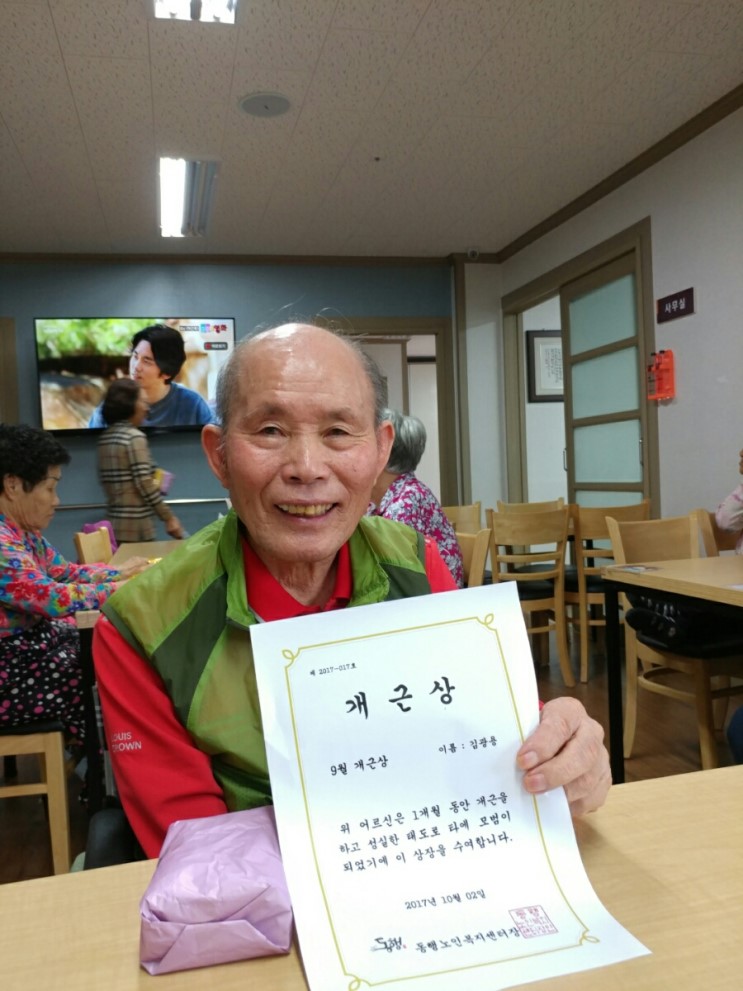 사무실
제 2017-017호
개근상
이름 : 김광용
9월 개근상
위 어르신은 1개월 동안 개근을
하고 성실한 태도로 타에 모범이
되었기에 이 상장을 수여합니다.
2017년 10월 02일
동행노인복지센터장
LOUIS